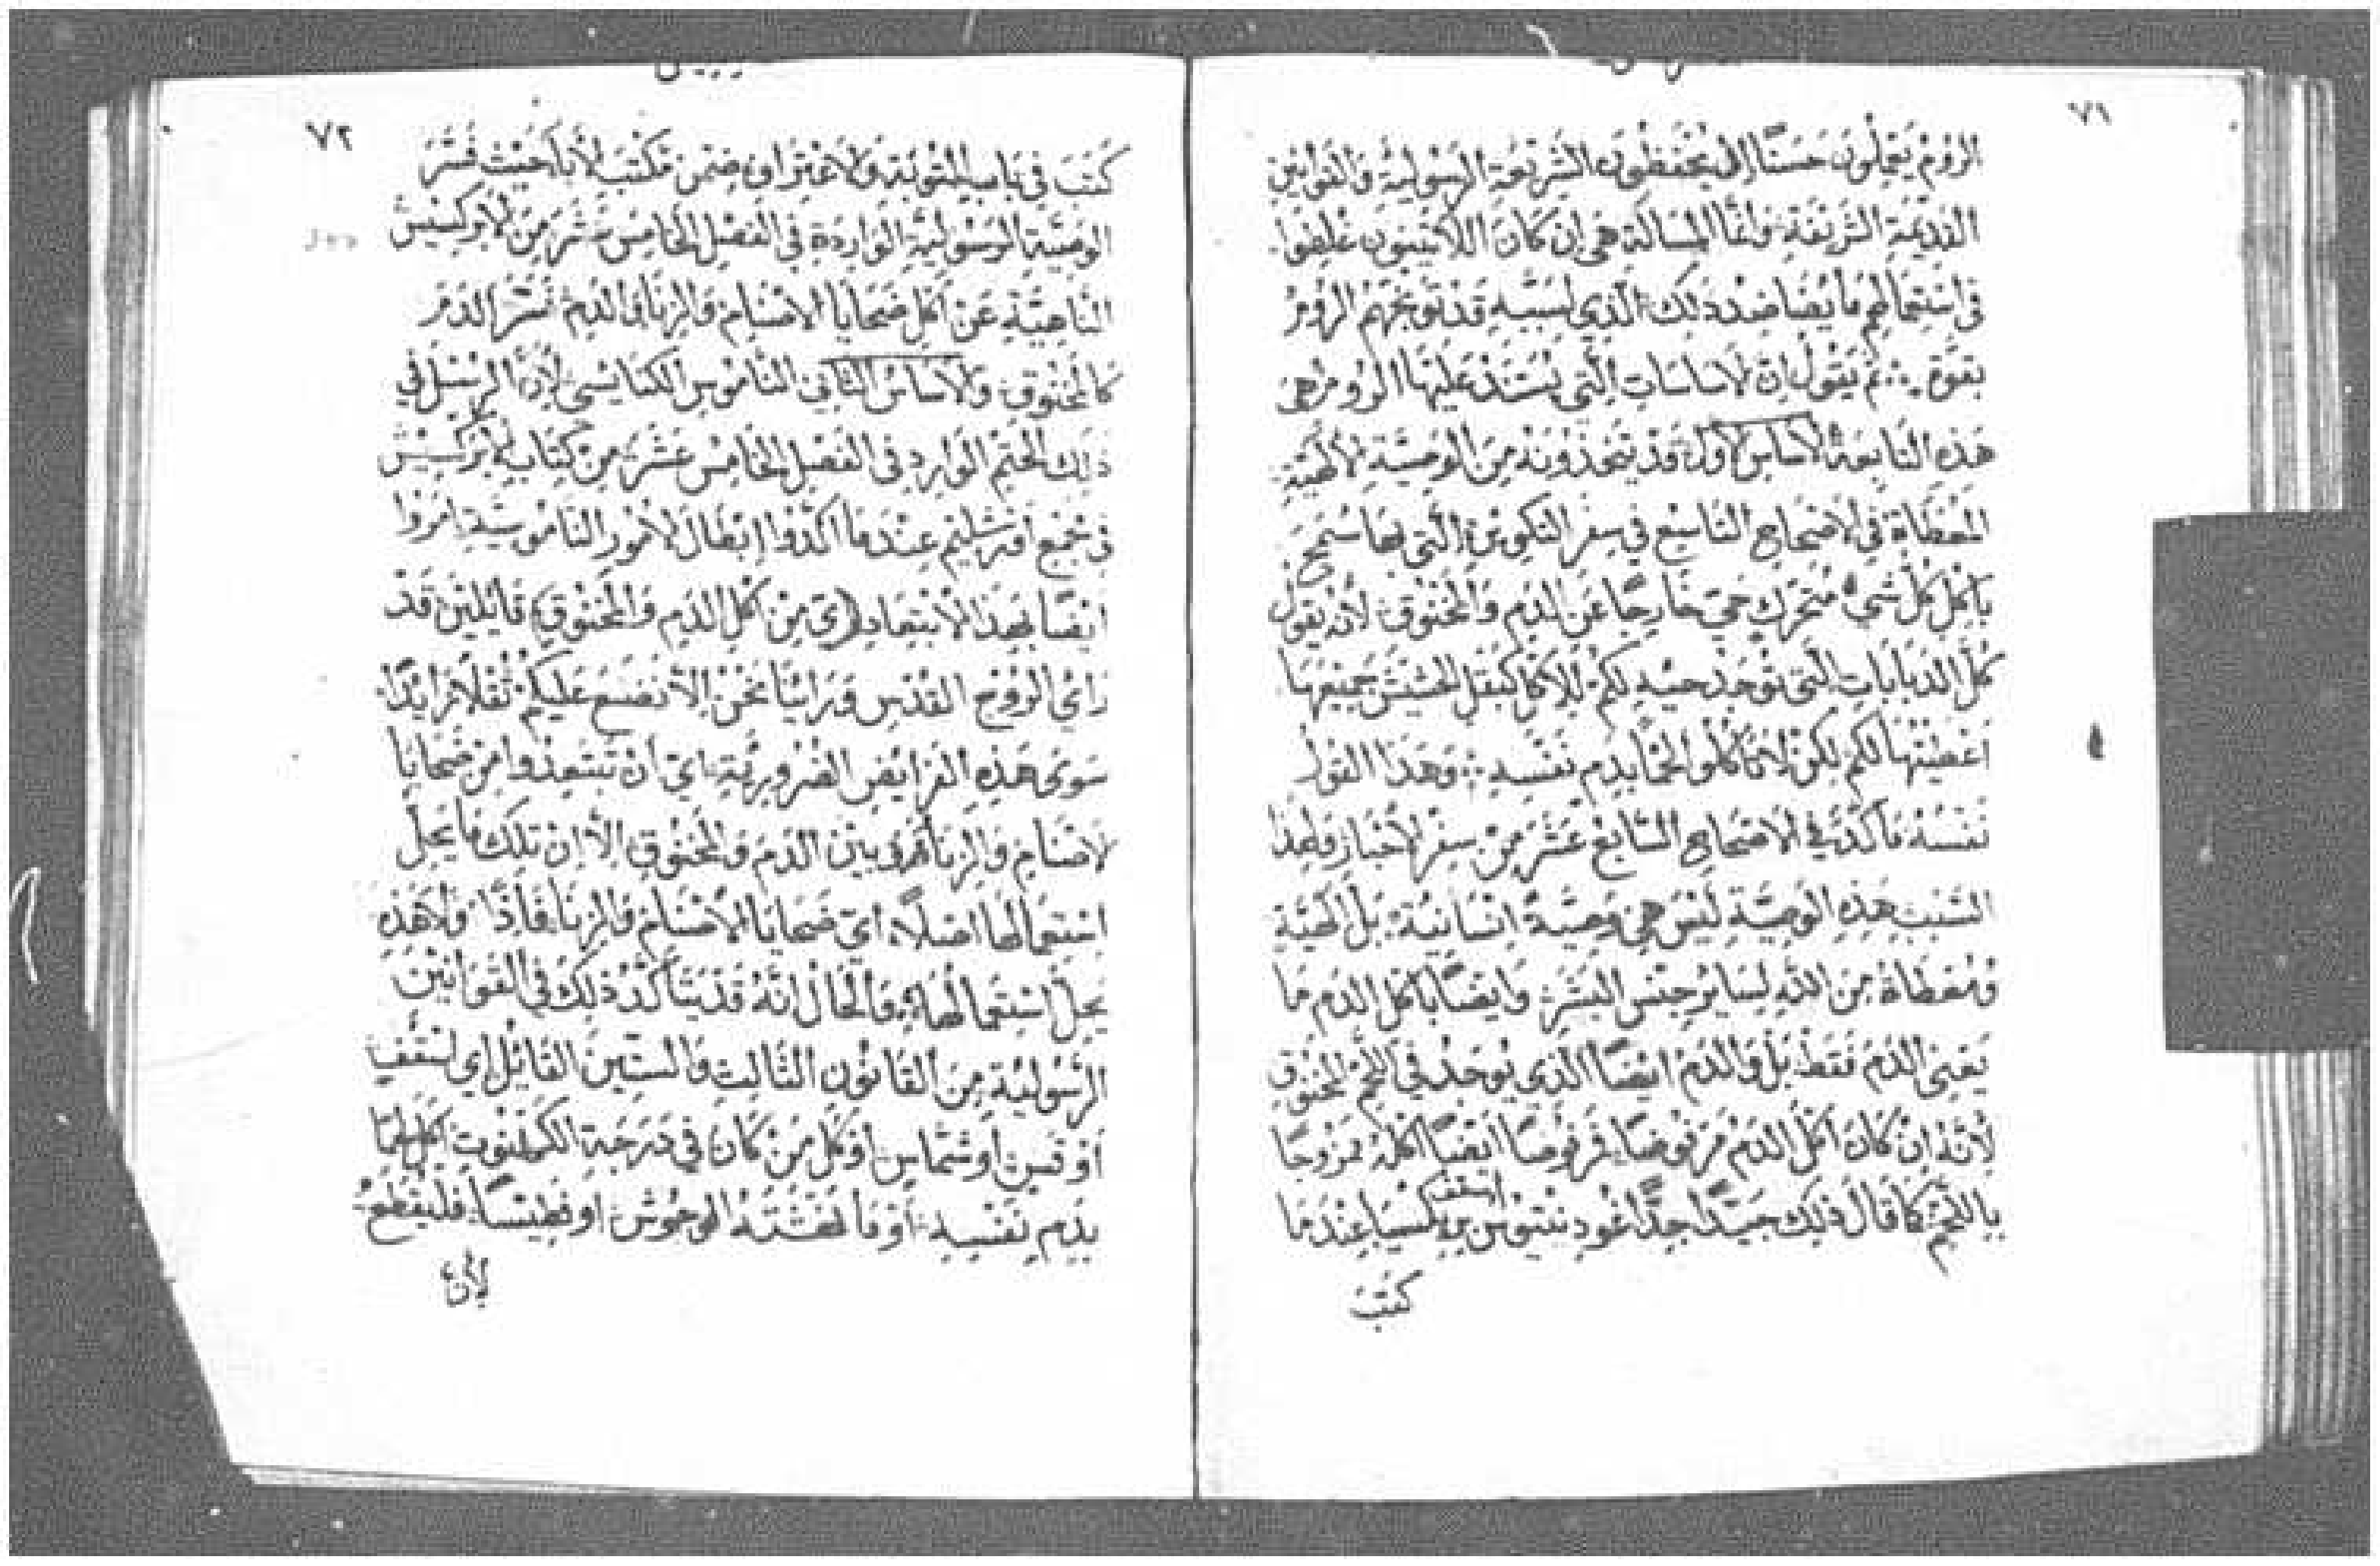 ٧١
الروم يعملون حسنًا اي يحفظون الشريعة الرسولية والقوانين
القديمة الشريفة واما المسالة هي ان كان اللاتينيون غلطوا
في استعمالهم ما يضاضدد ذلك الذي لسببه قد توبخهم الروم
بقوة ⁘ ثم يقول ان الاساسات التي يستند عليها الروم هي
هذه التابعة الاساس الاول قد يتخذونه من الوصية الالهية
المعطاة في الاصحاح التاسع في سفر التكوين التي بها سمح
باكل كل شيء متحرك حي خارجًا عن الدم والمخنوق لانه يقول
كل الدبابات التي توجد حيه لكم للاكل كبقل الحشيش جميعها
اعطيتها لكم لكن لا تاكلوا لحمًا بدم نفسه ⁘ وهذا القول
نفسه تاكد في الاصحاح السابع عشر من سفر الاحبار ولهذا
السبب هذه الوصية ليس هي وصية انسانية بل الهية
ومعطاة من الله لساير جنس البشر وايضًا باكل الدم ما
يعني الدم فقط بل والدم ايضًا الذي يوجد في اللحم المخنوق
لانه ان كان اكل الدم مرفوضا فمرفوضا ايضًا اكله ممزوجا
باللحم كما قال ذلك جيدًا جدًا غودينتيوس اسقف بريكسيا عندما
كتب
٧٢
كتب في باب التوبة والاعتراف ضمن مكتب الابا حيث فسر
الوصية الرسولية الواردة في الفصل الخامس عشر من الابركسيس
الناهية عن اكل ضحايا الاصنام والزنا اي الدم فسر الدم
كالمخنوق والاساس الثاني الناموس الكنايسي لان الرسل في
ذلك الحتم الوارد في الفصل الخامس عشر من كتاب الابركسيس
في مجمع اورشليم عندما اكدوا ابطال الامور الناموسية امروا
ايضًا بهذا الابتعاد (اي من اكل الدم والمخنوق) قايلين قد
راي الروح القدس وراينا نحن الا نضع عليكم ثقلا زايدًا
سوى هذه الفرايض الضروريّة اي ان تبتعدوا من ضحايا
الاصنام والزنا وبين الدم والمخنوق الا ان تلك ما يحل
استعمالها اصلًا اي ضحايا الاصنام والزنا فاذًا ولا هذه
يحل استعمالها والحال انه قد يتاكد ذلك في القوانين
الرسولية من القانون الثالث والستين القايل اي اسقف
او قس او شماس او كل من كان في درجة الكهنوت اكل لحمًا
بدم نفسه او ما نهشته الوحوش او فطيسًا فليقطع
لان